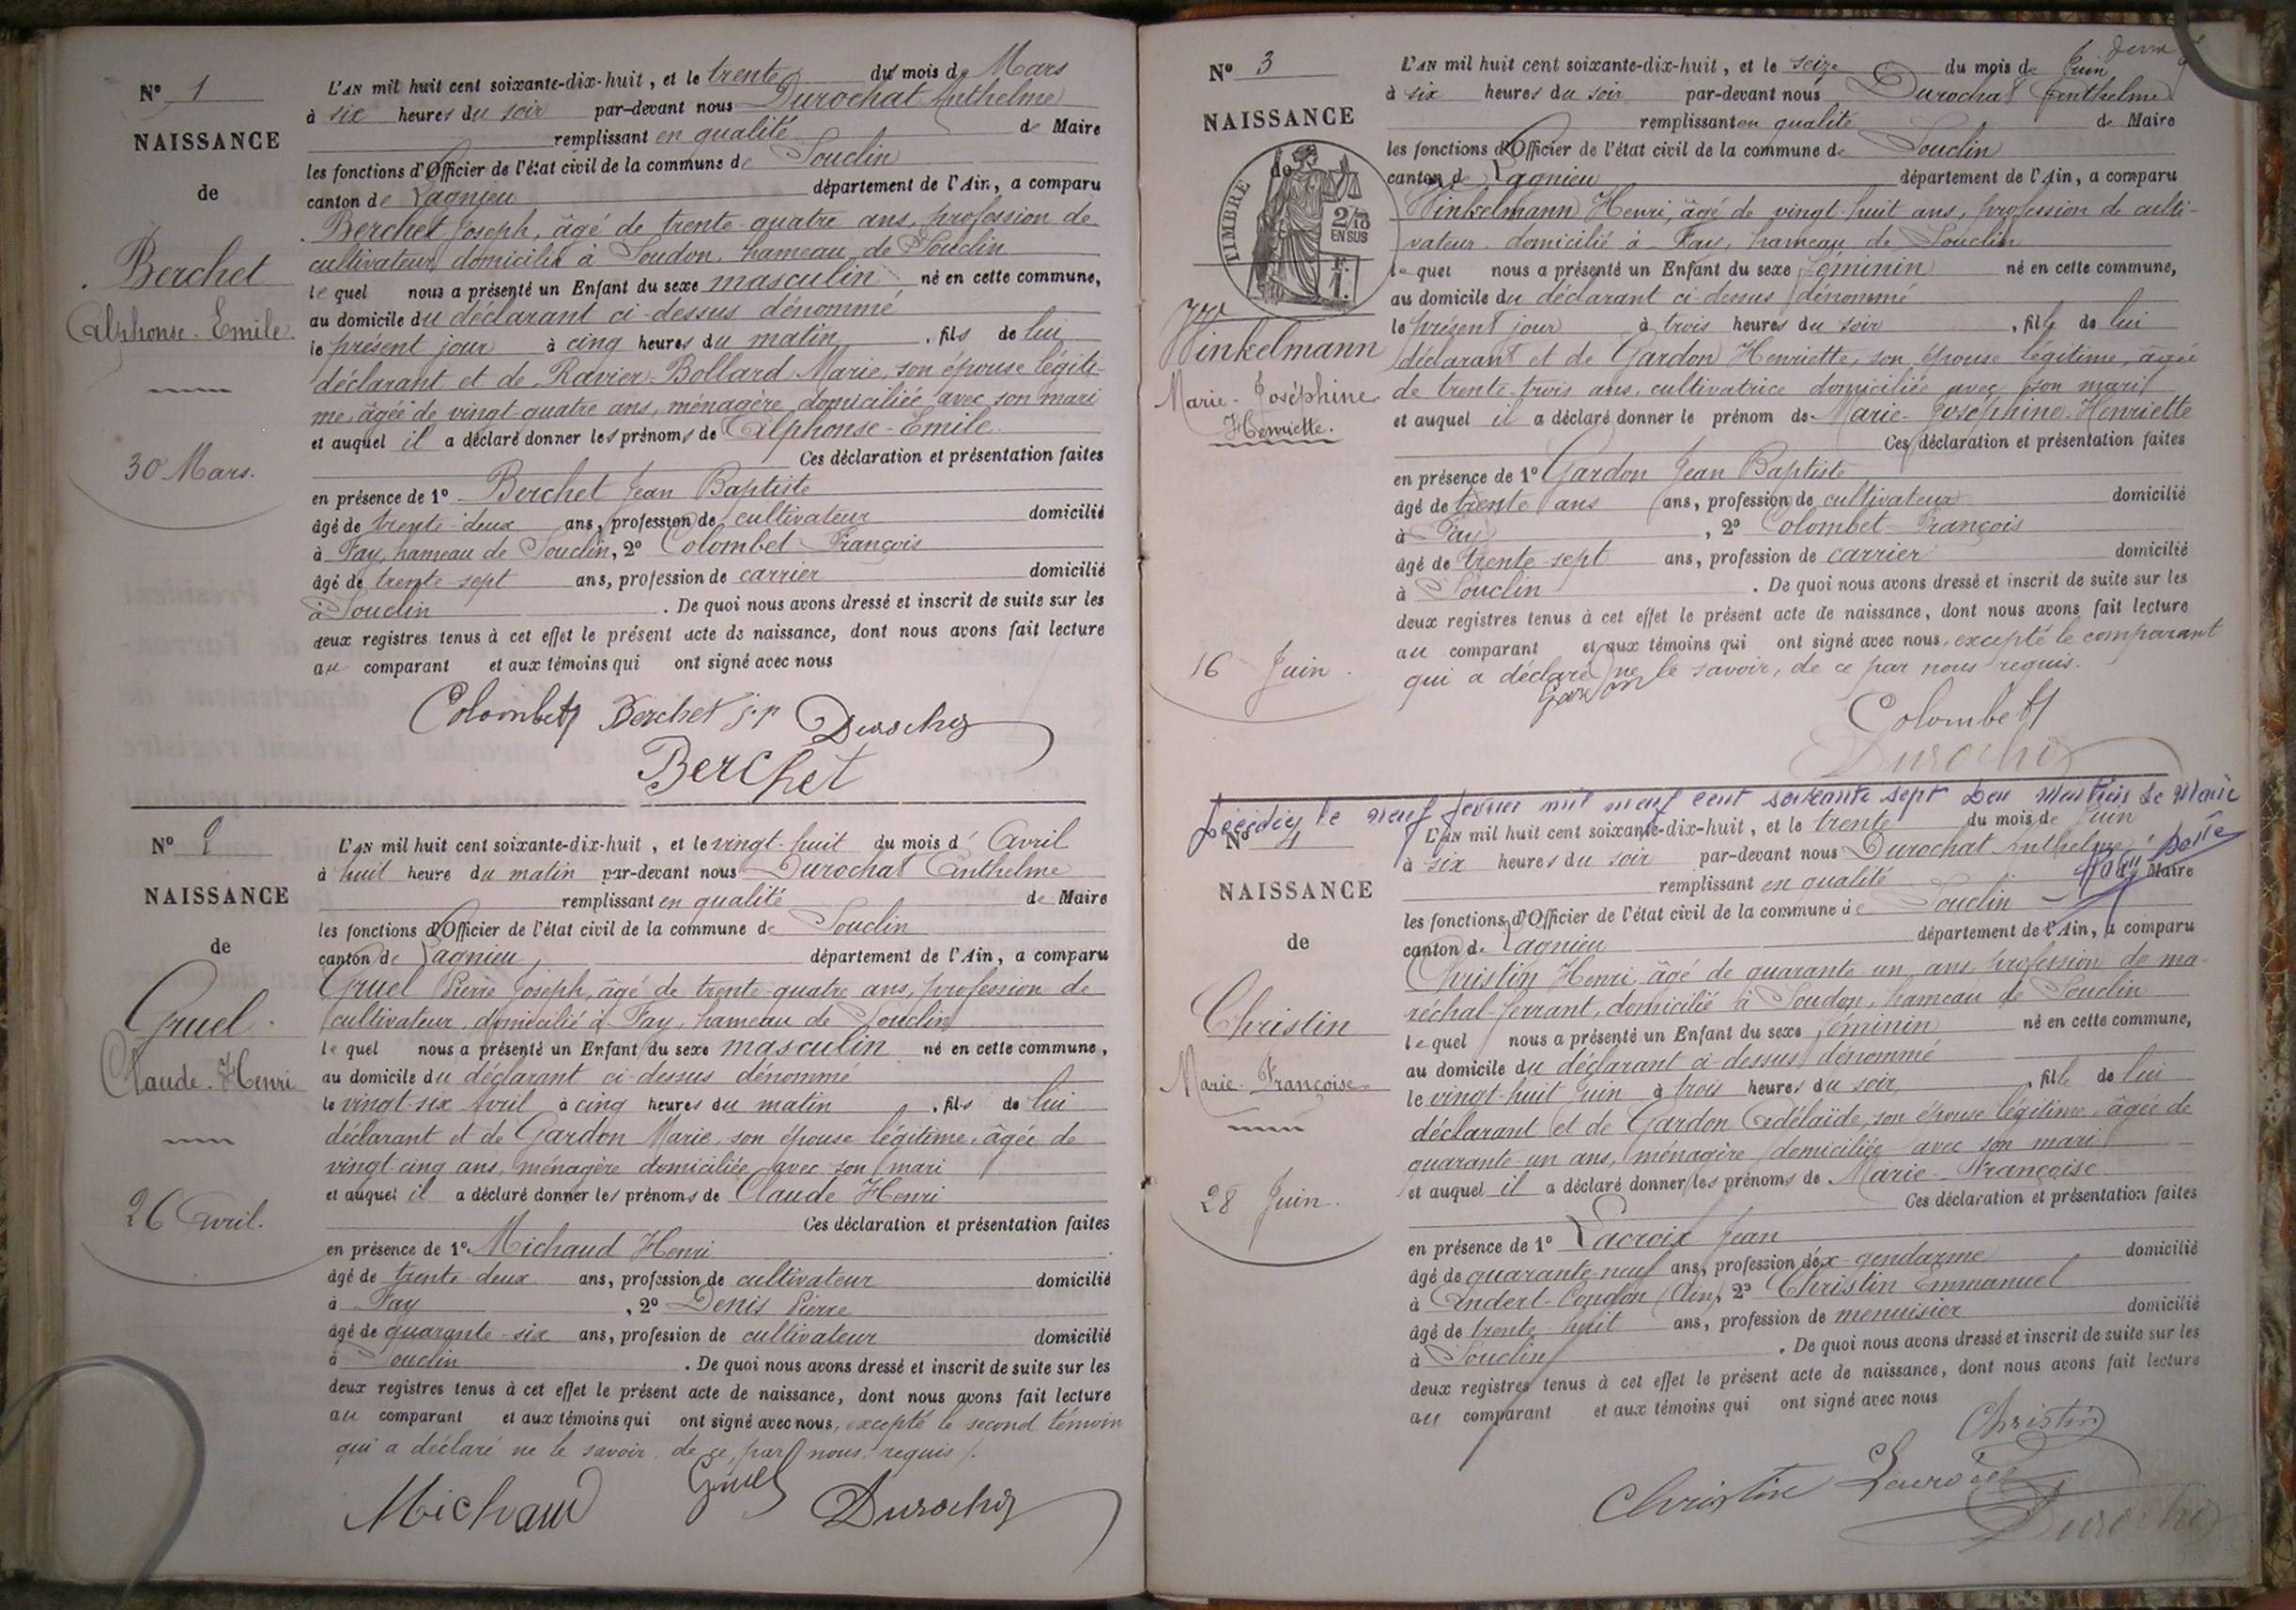 N° 1
NAISSANCE
de
Berchet
Alphonse-Emile
30 Mars.
L'AN mil huit cent soixante-dix-huit, et le trente du mois de Mars
à six heures du soir par-devant nous Durochat Anthelme
remplissant en qualité de Maire
les fonctions d'Officier de l'état civil de la commune de Souclin
canton de Lagnieu département de l'Ain, a comparu
Berchet Joseph, âgé de trente-quatre ans, profession de
cultivateur, domicilié à Soudon, hameau de Souclin
lequel nous a présenté un Enfant du sexe masculin né en cette commune,
au domicile du déclarant ci-dessus dénommé
le présent jour à cinq heures du matin, fils de lui
déclarant et de Ravier-Bollard Marie, son épouse légiti-
me, âgée de vingt-quatre ans, ménagère domiciliée avec son mari
et auquel il a déclaré donner les prénoms de Alphonse-Emile
Ces déclaration et présentation faites
en présence de 1° Berchet Jean Baptiste
âgé de trente-deux ans, profession de cultivateur domicilié
à Fay, hameau de Souclin, 2° Colombet François
âgé de trente-sept ans, profession de carrier domicilié
à Souclin. De quoi nous avons dressé et inscrit de suite sur les
deux registres tenus à cet effet le présent acte de naissance, dont nous avons fait lecture
au comparant et aux témoins qui ont signé avec nous
Colombet Berchet j.p Durochat
Berchet
N° 2
NAISSANCE
de
Gruel
Claude-Henri
26 Avril.
L'AN mil huit cent soixante-dix-huit, et le vingt-huit du mois d'Avril
à huit heure du matin par-devant nous Durochat Anthelme
remplissant en qualité de Maire
les fonctions d'Officier de l'état civil de la commune de Souclin
canton de Lagnieu, département de l'Ain, a comparu
Gruel Pierre Joseph, âgé de trente-quatre ans, profession de
cultivateur, domicilié à Fay, hameau de Souclin
lequel nous a présenté un Enfant du sexe masculin né en cette commune,
au domicile du déclarant ci-dessus dénommé
le vingt-six Avril à cinq heures du matin, fils de lui
déclarant et de Gardon Marie, son épouse légitime, âgée de
vingt-cinq ans, ménagère domiciliée avec son mari
et auquel il a déclaré donner les prénoms de Claude Henri
Ces déclaration et présentation faites
en présence de 1° Michaud Henri
âgé de trente-deux ans, profession de cultivateur domicilié
à Fay, 2° Denis Pierre
âgé de quarante-six ans, profession de cultivateur domicilié
à Souclin. De quoi nous avons dressé et inscrit de suite sur les
deux registres tenus à cet effet le présent acte de naissance, dont nous avons fait lecture
au comparant et aux témoins qui ont signé avec nous, excepté le second témoin
qui a déclaré ne le savoir, de ce, par nous, requis.
Michaud Gruel Durochat
N° 3
NAISSANCE
de
TIMBRE
2/10
EN SUS
F.
1.
Winkelmann
Marie-Joséphine
Henriette.
16 Juin.
L'AN mil huit cent soixante-dix-huit, et le seize du mois de Juin
à six heures du soir par-devant nous Durochat Anthelme
remplissant en qualité de Maire
les fonctions d'Officier de l'état civil de la commune de Souclin
canton de Lagnieu département de l'Ain, a comparu
Winkelmann Henri, âgé de vingt-huit ans, profession de culti-
vateur, domicilié à Fay, hameau de Souclin
lequel nous a présenté un Enfant du sexe féminin né en cette commune,
au domicile du déclarant ci-dessus dénommé
le présent jour à trois heures du soir, fille de lui
déclarant et de Gardon Henriette, son épouse légitime, âgée
de trente-trois ans, cultivatrice domiciliée avec son mari
et auquel il a déclaré donner le prénom de Marie-Joséphine-Henriette
Ces déclaration et présentation faites
en présence de 1° Gardon Jean Baptiste
âgé de trente ans ans, profession de cultivateur domicilié
à Fay, 2° Colombet François
âgé de trente-sept ans, profession de carrier domicilié
à Souclin. De quoi nous avons dressé et inscrit de suite sur les
deux registres tenus à cet effet le présent acte de naissance, dont nous avons fait lecture
au comparant et aux témoins qui ont signé avec nous, excepté le comparant
qui a déclaré ne le savoir, de ce par nous requis.
Gardon
Colombet
Durochat
Décédée le neuf février mil neuf cent soixante sept le Maire
N° 4
NAISSANCE
de
Christin
Marie-Françoise
28 Juin.
L'AN mil huit cent soixante-dix-huit, et le trente du mois de Juin
à six heures du soir par-devant nous Durochat Anthelme
remplissant en qualité Maire
les fonctions d'Officier de l'état civil de la commune de Souclin
canton de Lagnieu département de l'Ain, a comparu
Christin Henri, âgé de quarante-un ans, profession de ma-
réchal-ferrant, domicilié à Soudon, hameau de Souclin
lequel nous a présenté un Enfant du sexe féminin né en cette commune,
au domicile du déclarant ci-dessus dénommé
le vingt-huit Juin à trois heures du soir, fille de lui
déclarant et de Gardon Adélaïde, son épouse légitime, âgée de
quarante-un ans, ménagère domiciliée avec son mari
et auquel il a déclaré donner les prénoms de Marie-Françoise
Ces déclaration et présentation faites
en présence de 1° Lacroix Jean
âgé de quarante-neuf ans, profession d'ex-gendarme domicilié
à Andert-Condon (Ain), 2° Christin Emmanuel
âgé de trente-huit ans, profession de menuisier domicilié
à Souclin. De quoi nous avons dressé et inscrit de suite sur les
deux registres tenus à cet effet le présent acte de naissance, dont nous avons fait lecture
au comparant et aux témoins qui ont signé avec nous
Christin
Christin Lacroix
Durochat